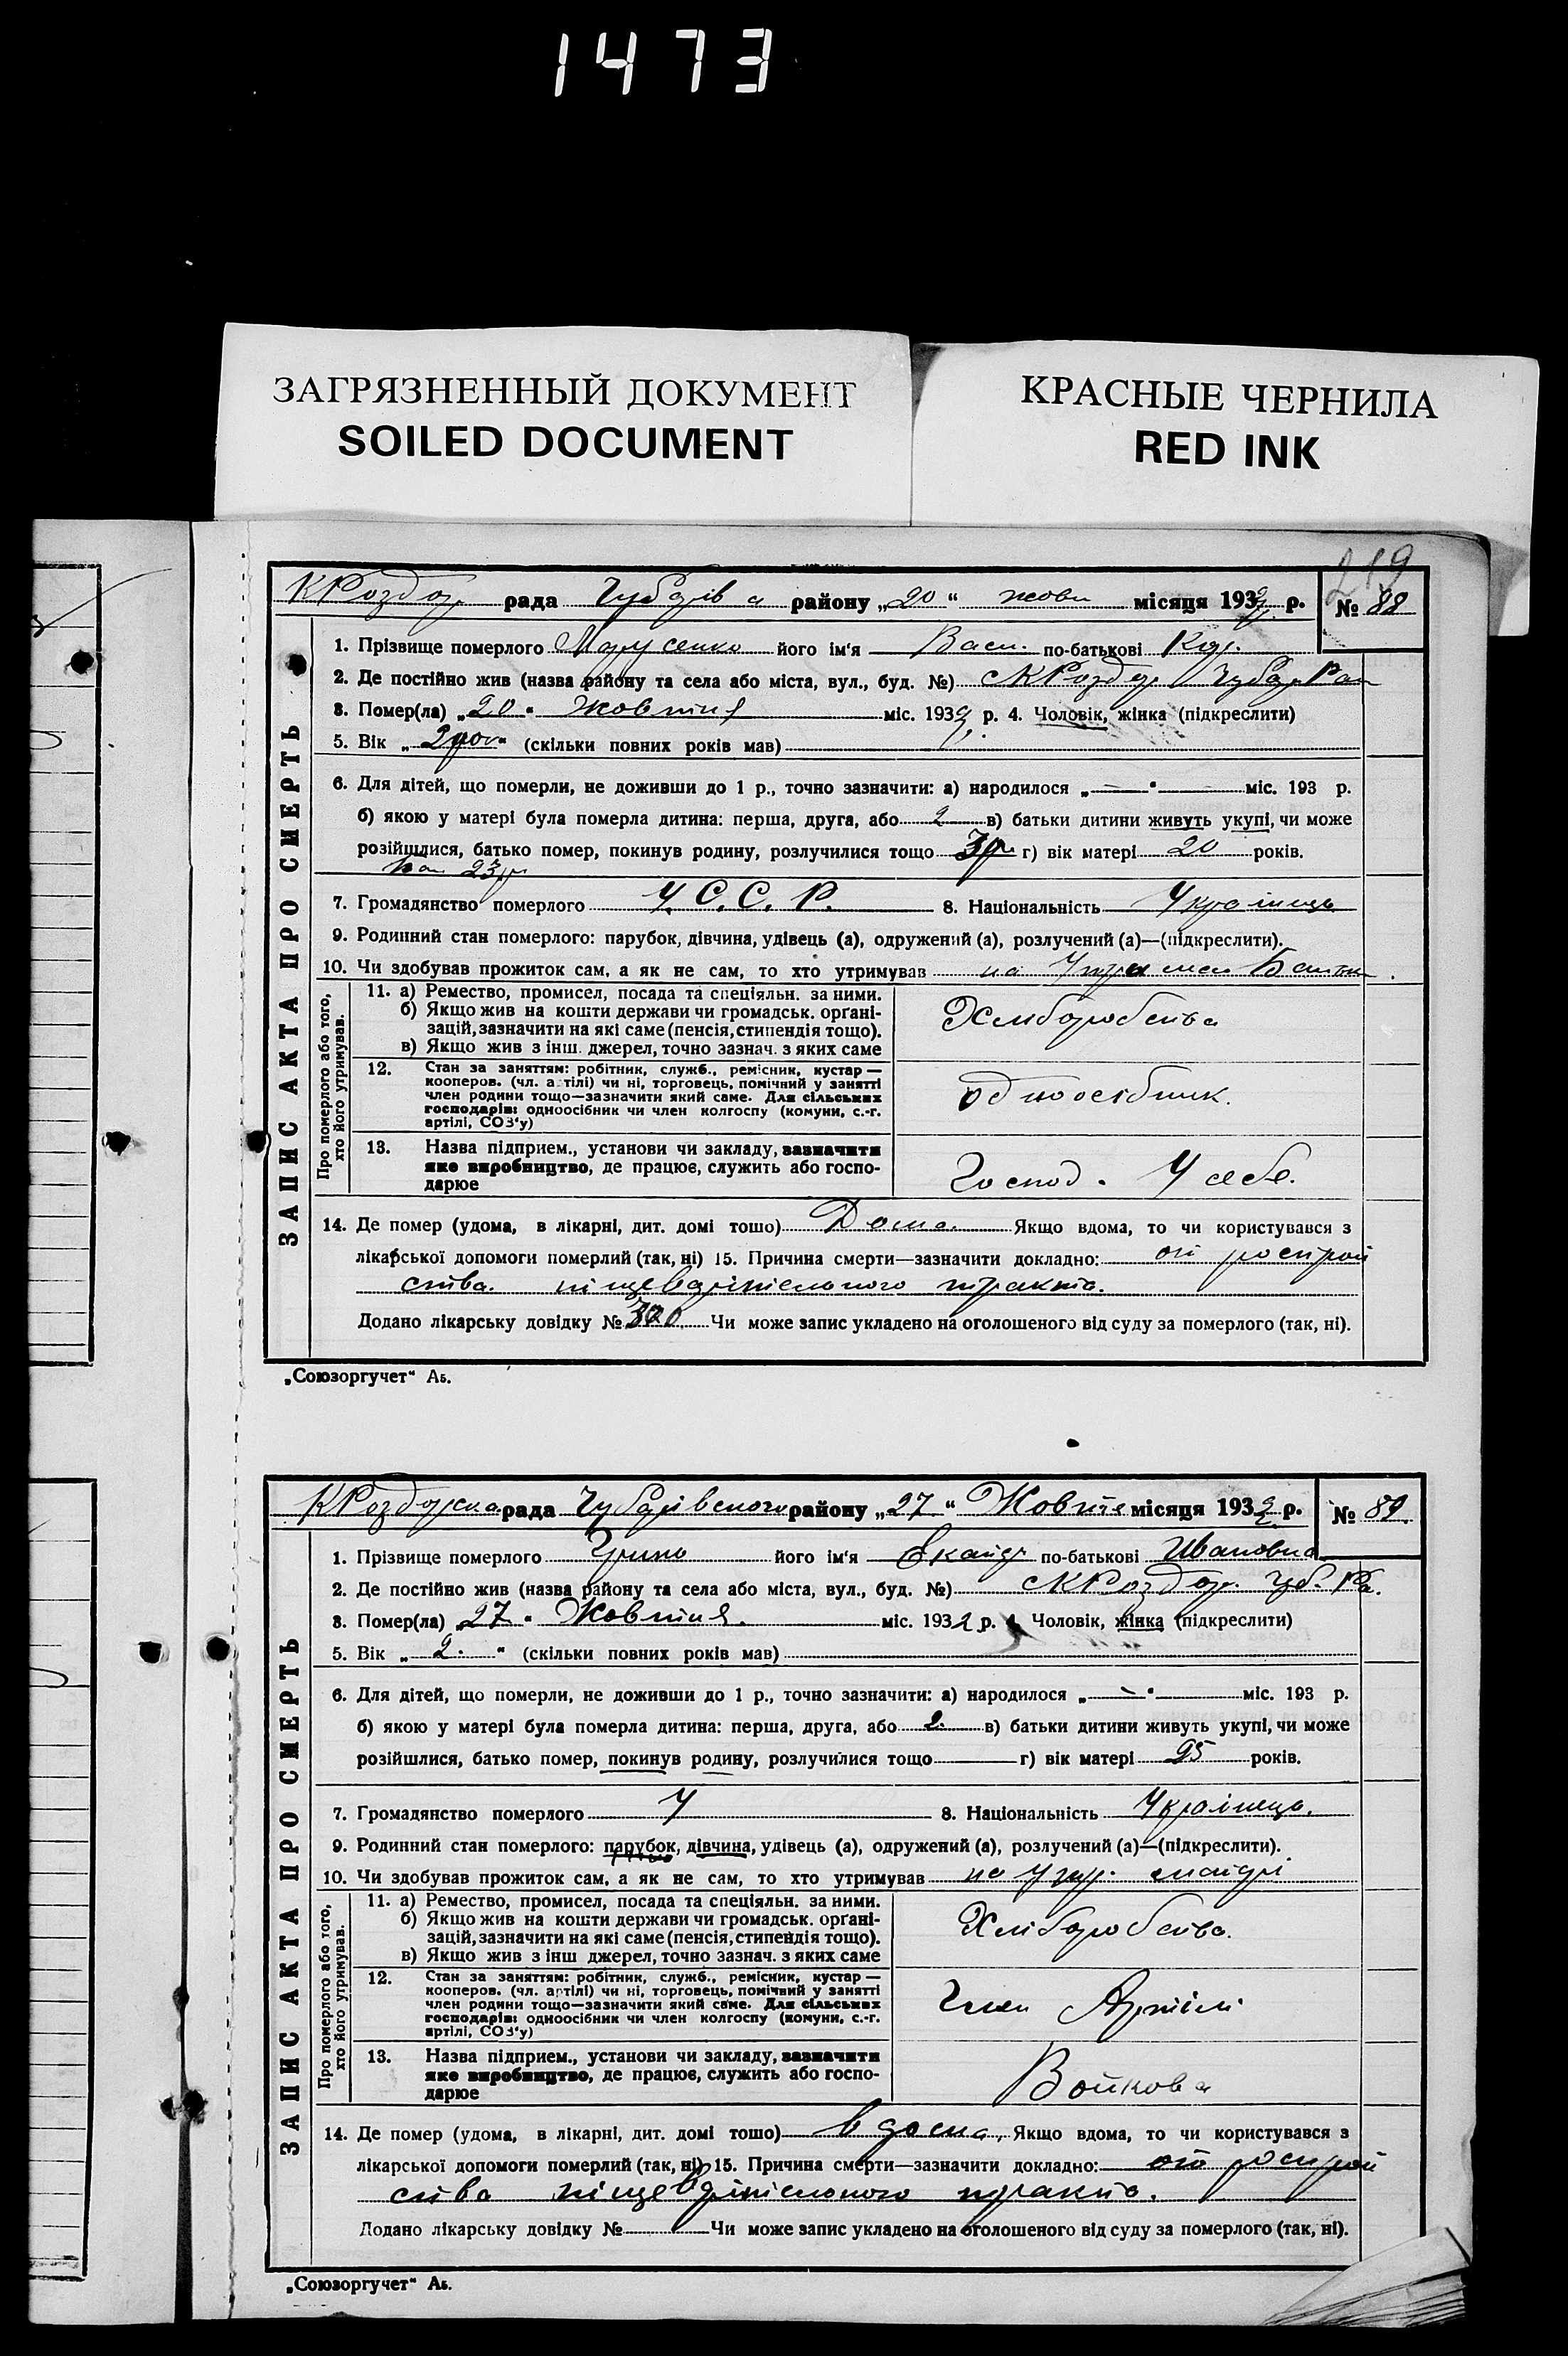 1473
ЗАГРЯЗНЕННЫЙ ДОКУМЕНТ
SOILED DOCUMENT
КРАСНЫЕ ЧЕРНИЛА
RED INK
219
КРоздор рада Чубарів а району „20“ жовт місяця 1932 р. № 88
ЗАПИС АКТА ПРО СМЕРТЬ
1. Прізвище померлого його ім'я Васи. по-батькові
2. Де постійно жив (назва району та села або міста, вул., буд. №) с КРоздор Чубар Рай
3. Помер(ла) „20“ Жовтня міс. 1932 р. 4. Чоловік, жінка (підкреслити)
5. Вік „2 рок“ (скільки повних років мав)
6. Для дітей, що померли, не доживши до 1 р., точно зазначити: а) народилося „—“ — міс. 193 р.
б) якою у матері була померла дитина: перша, друга, або 2 в) батьки дитини живуть укупі, чи може
розійшлися, батько помер, покинув родину, розлучилися тощо г) вік матері 20 років.
23
7. Громадянство померлого У.С.С.Р. 8. Національність Українець
9. Родинний стан померлого: парубок, дівчина, удівець (а), одружений (а), розлучений (а)—(підкреслити).
10. Чи здобував прожиток сам, а як не сам, то хто утримував на Утриман Батьк
Про померлого або того, хто його утримував.
11. а) Ремество, промисел, посада та спеціяльн. за ними.
б) Якщо жив на кошти держави чи громадськ. орґані-
зацій, зазначити на які саме (пенсія, стипендія тощо).
в) Якщо жив з інш. джерел, точно зазнач. з яких саме
Хліборобства
12. Стан за заняттям: робітник, служб., ремісник, кустар —
кооперов. (чл. артілі) чи ні, торговець, помічний у занятті
член родини тощо—зазначити який саме. Для сільських
господарів: одноосібник чи член колгоспу (комуни, с.-г.
артілі, СОЗ'у)
одноосібник.
13. Назва підприєм., установи чи закладу, зазначити
яке виробництво, де працює, служить або госпо-
дарює
Господ. У себе.
14. Де помер (удома, в лікарні, дит. домі тошо) Дома Якщо вдома, то чи користувався з
лікарської допомоги померлий (так, ні) 15. Причина смерти—зазначити докладно: от росстрой
ства. піщеварітельного тракта.
Додано лікарську довідку № Чи може запис укладено на оголошеного від суду за померлого (так, ні).
„Союзоргучет“ Аб.
КРоздорска рада Чубарівського району „27“ Жовтня місяця 1932 р. № 89.
ЗАПИС АКТА ПРО СМЕРТЬ
1. Прізвище померлого його ім'я Екатер по-батькові Ивановна
2. Де постійно жив (назва району та села або міста, вул., буд. №) с КРоздор. Чуб. Ра.
3. Помер(ла) „27“ Жовтня. міс. 1932 р. 4. Чоловік, жінка (підкреслити)
5. Вік „2.“ (скільки повних років мав)
6. Для дітей, що померли, не доживши до 1 р., точно зазначити: а) народилося „—“ — міс. 193 р.
б) якою у матері була померла дитина: перша, друга, або 2. в) батьки дитини живуть укупі, чи може
розійшлися, батько помер, покинув родину, розлучилися тощо — г) вік матері 25 років.
7. Громадянство померлого У 8. Національність Українець.
9. Родинний стан померлого: парубок, дівчина, удівець (а), одружений (а), розлучений (а)—(підкреслити).
10. Чи здобував прожиток сам, а як не сам, то хто утримував на Утр. матері
Про померлого або того, хто його утримував.
11. а) Ремество, промисел, посада та спеціяльн. за ними.
б) Якщо жив на кошти держави чи громадськ. орґані-
зацій, зазначити на які саме (пенсія, стипендія тощо).
в) Якщо жив з інш джерел, точно зазнач. з яких саме
Хліборобства.
12. Стан за заняттям: робітник, служб., ремісник, кустар —
кооперов. (чл. артілі) чи ні, торговець, помічний у занятті
член родини тощо—зазначити який саме. Для сільських
господарів: одноосібник чи член колгоспу (комуни, с.-г.
артілі, СОЗ'у)
Член Артілі
13. Назва підприєм., установи чи закладу, зазначити
яке виробництво, де працює, служить або госпо-
дарює
Войкова
14. Де помер (удома, в лікарні, дит. домі тошо) вдома, Якщо вдома, то чи користувався з
лікарської допомоги померлий (так, ні) 15. Причина смерти—зазначити докладно: от росстрой
ства піщеварітельного тракта.
Додано лікарську довідку № Чи може запис укладено на оголошеного від суду за померлого (так, ні).
„Союзоргучет“ Аб.